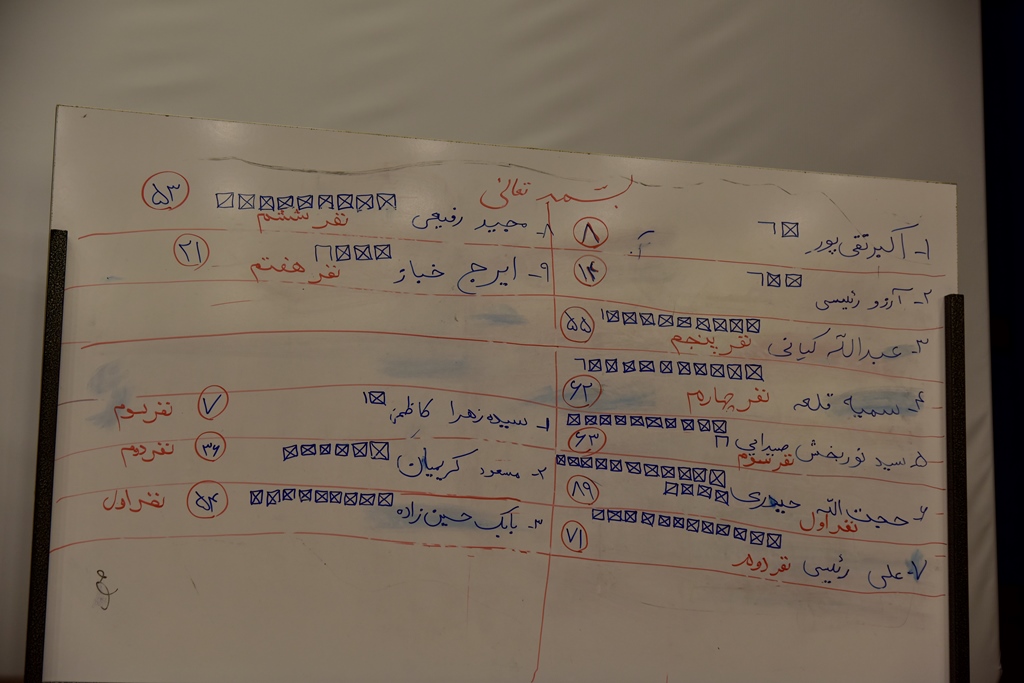 بسمه تعالی
۱- اکبر تقی پور ۸
۲- آرزو رئیسی ۱۴
۳- عبدالله کیانی نفر پنجم ۵۵
۴- سمیه قلعه نفر چهارم ۶۲
۵- سید نوربخش صیدایی نفر سوم ۶۳
۶- حجت الله حیدری نفر اول ۸۹
۷- علی رئیسی نفر دوم ۷۱
۸- مجید رفیعی نفر ششم ۵۳
۹- ایرج خباز نفر هفتم ۲۱
۱- سیده زهرا کاظمی ۷ نفر سوم
۲- مسعود کریمیان ۳۶ نفر دوم
۳- بابک حسین زاده ۵۴ نفر اول